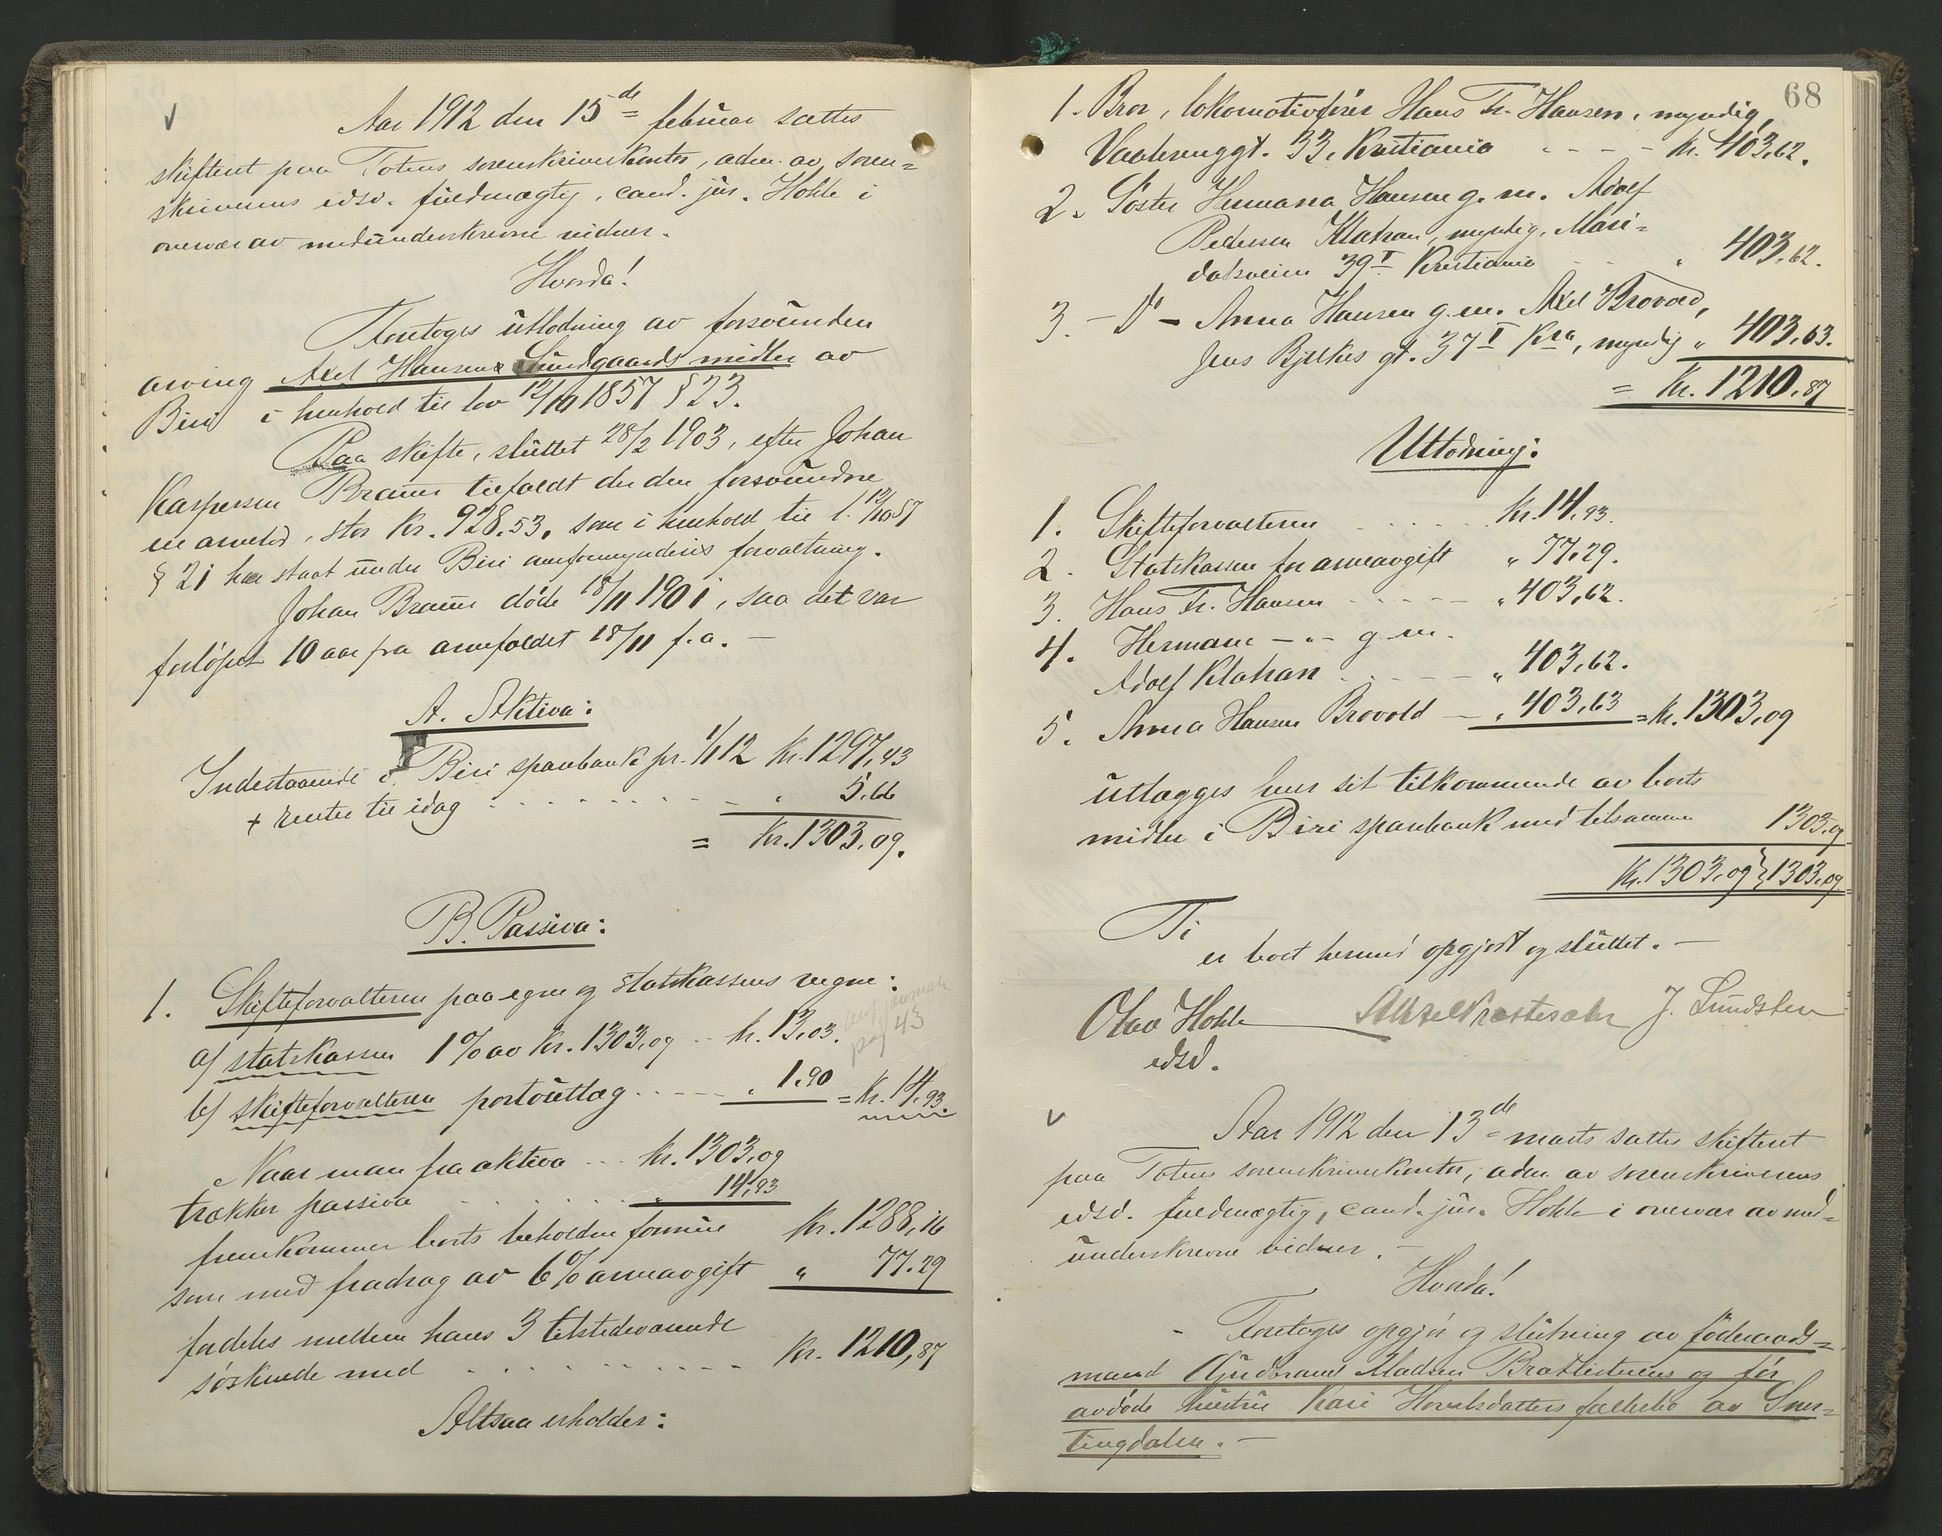 Aar 1912 den 15de februar sattes
skifteret paa Totens sorenskriverkontor, adm. av soren=
skriverens edsv. fuldmægtig, cand. jur. Hohle i
overvær av medunderskrevne vidner.
Hvorda!
Foretoges utlodning av forsvunden
arving Axel Hansen Sundgaards midler av
Biri i henhold til lov 12/10 1857 § 23.
Paa skifte, sluttet 28/2 1903, efter Johan
Kaspersen Braun tilfaldt der den forsvundne
en arvelod, stor Kr. 928.53, som i henhold til l. 12/10 57
§ 21 har staat under Biri overformynderis forvaltning.
Johan Braun døde 18/11 1901, saa det var
forløpet 10 aar fra arvefaldet 18/11 f.a. —
A. Aktiva:
Indestaaende i Biri sparebank pr. 1/1 12 Kr. 1297,43
+ renter til idag . . . . . . " 5.66
= Kr. 1303,09.
B. Passiva:
1. Skifteforvalteren paa egne og statskassens vegne:
a) statskassen 1% av kr. 1303,09 . . kr. 13,03.
pag 43
b) skifteforvalteren portoutlæg . . . . " 1.90 = Kr. 14,93.
Naar man fra aktiva . . . kr. 1303,09
trækker passiva . . . . . . " 14,93
fremkommer boets beholdne formue Kr. 1288,16
som med fradrag av 6% arveavgift " 77.29
fordeles mellem hans 3 tilstedeværende
søskende med . . . . . . . . . Kr. 1210,87
Altsaa erholder:
68
1. Bror, lokomotivfører Hans Fr. Hansen, myndig,
Vaalerenggt. 33, Kristiania - - - - kr. 403,62.
2. Søster Hermana Hansen g. m. Adolf
Pedersen Klahan, myndig, Mari=
dalsveien 39 I Kristiania . . . " 403,62.
3. - D° - Anna Hansen g. m. Axel Brovold,
Jens Bjelkes gt. 37 I Kra, myndig " 403,63.
= Kr. 1210,87
Utlodning:
1. Skifteforvalteren . . . . . . Kr. 14,93.
2. Statskassen for arveavgift " 77.29.
3. Hans Fr. Hansen . . . . . " 403,62.
4. Hermane — " — g. m.
Adolf Klahan . . . . . . " 403,62.
5. Anna Hansen Brovold — " 403,63 = Kr. 1303,09
utlægges hver sit tilkommende av boets
midler i Biri sparebank med tilsammen 1303,09
Kr. 1303,09 } 1303,09
Ti
er boet hermed opgjort og sluttet. —
Olav Hohle J. Sundsten
edsv.
Aar 1912 den 13de marts sattes skifteret
paa Totens sorenskriverkontor, adm. av sorenskriverens
edsv. fuldmægtig, cand. jur. Hohle i overvær av med=
underskrevne vidner. —
Hvorda!
- Foretoges opgjør og slutning av føderaads=
mand Gudbrand Madsen Bratlistuens og før
avdøde hustru Kari Hovelsdatters fællesbo av Sner=
tingdalen. —